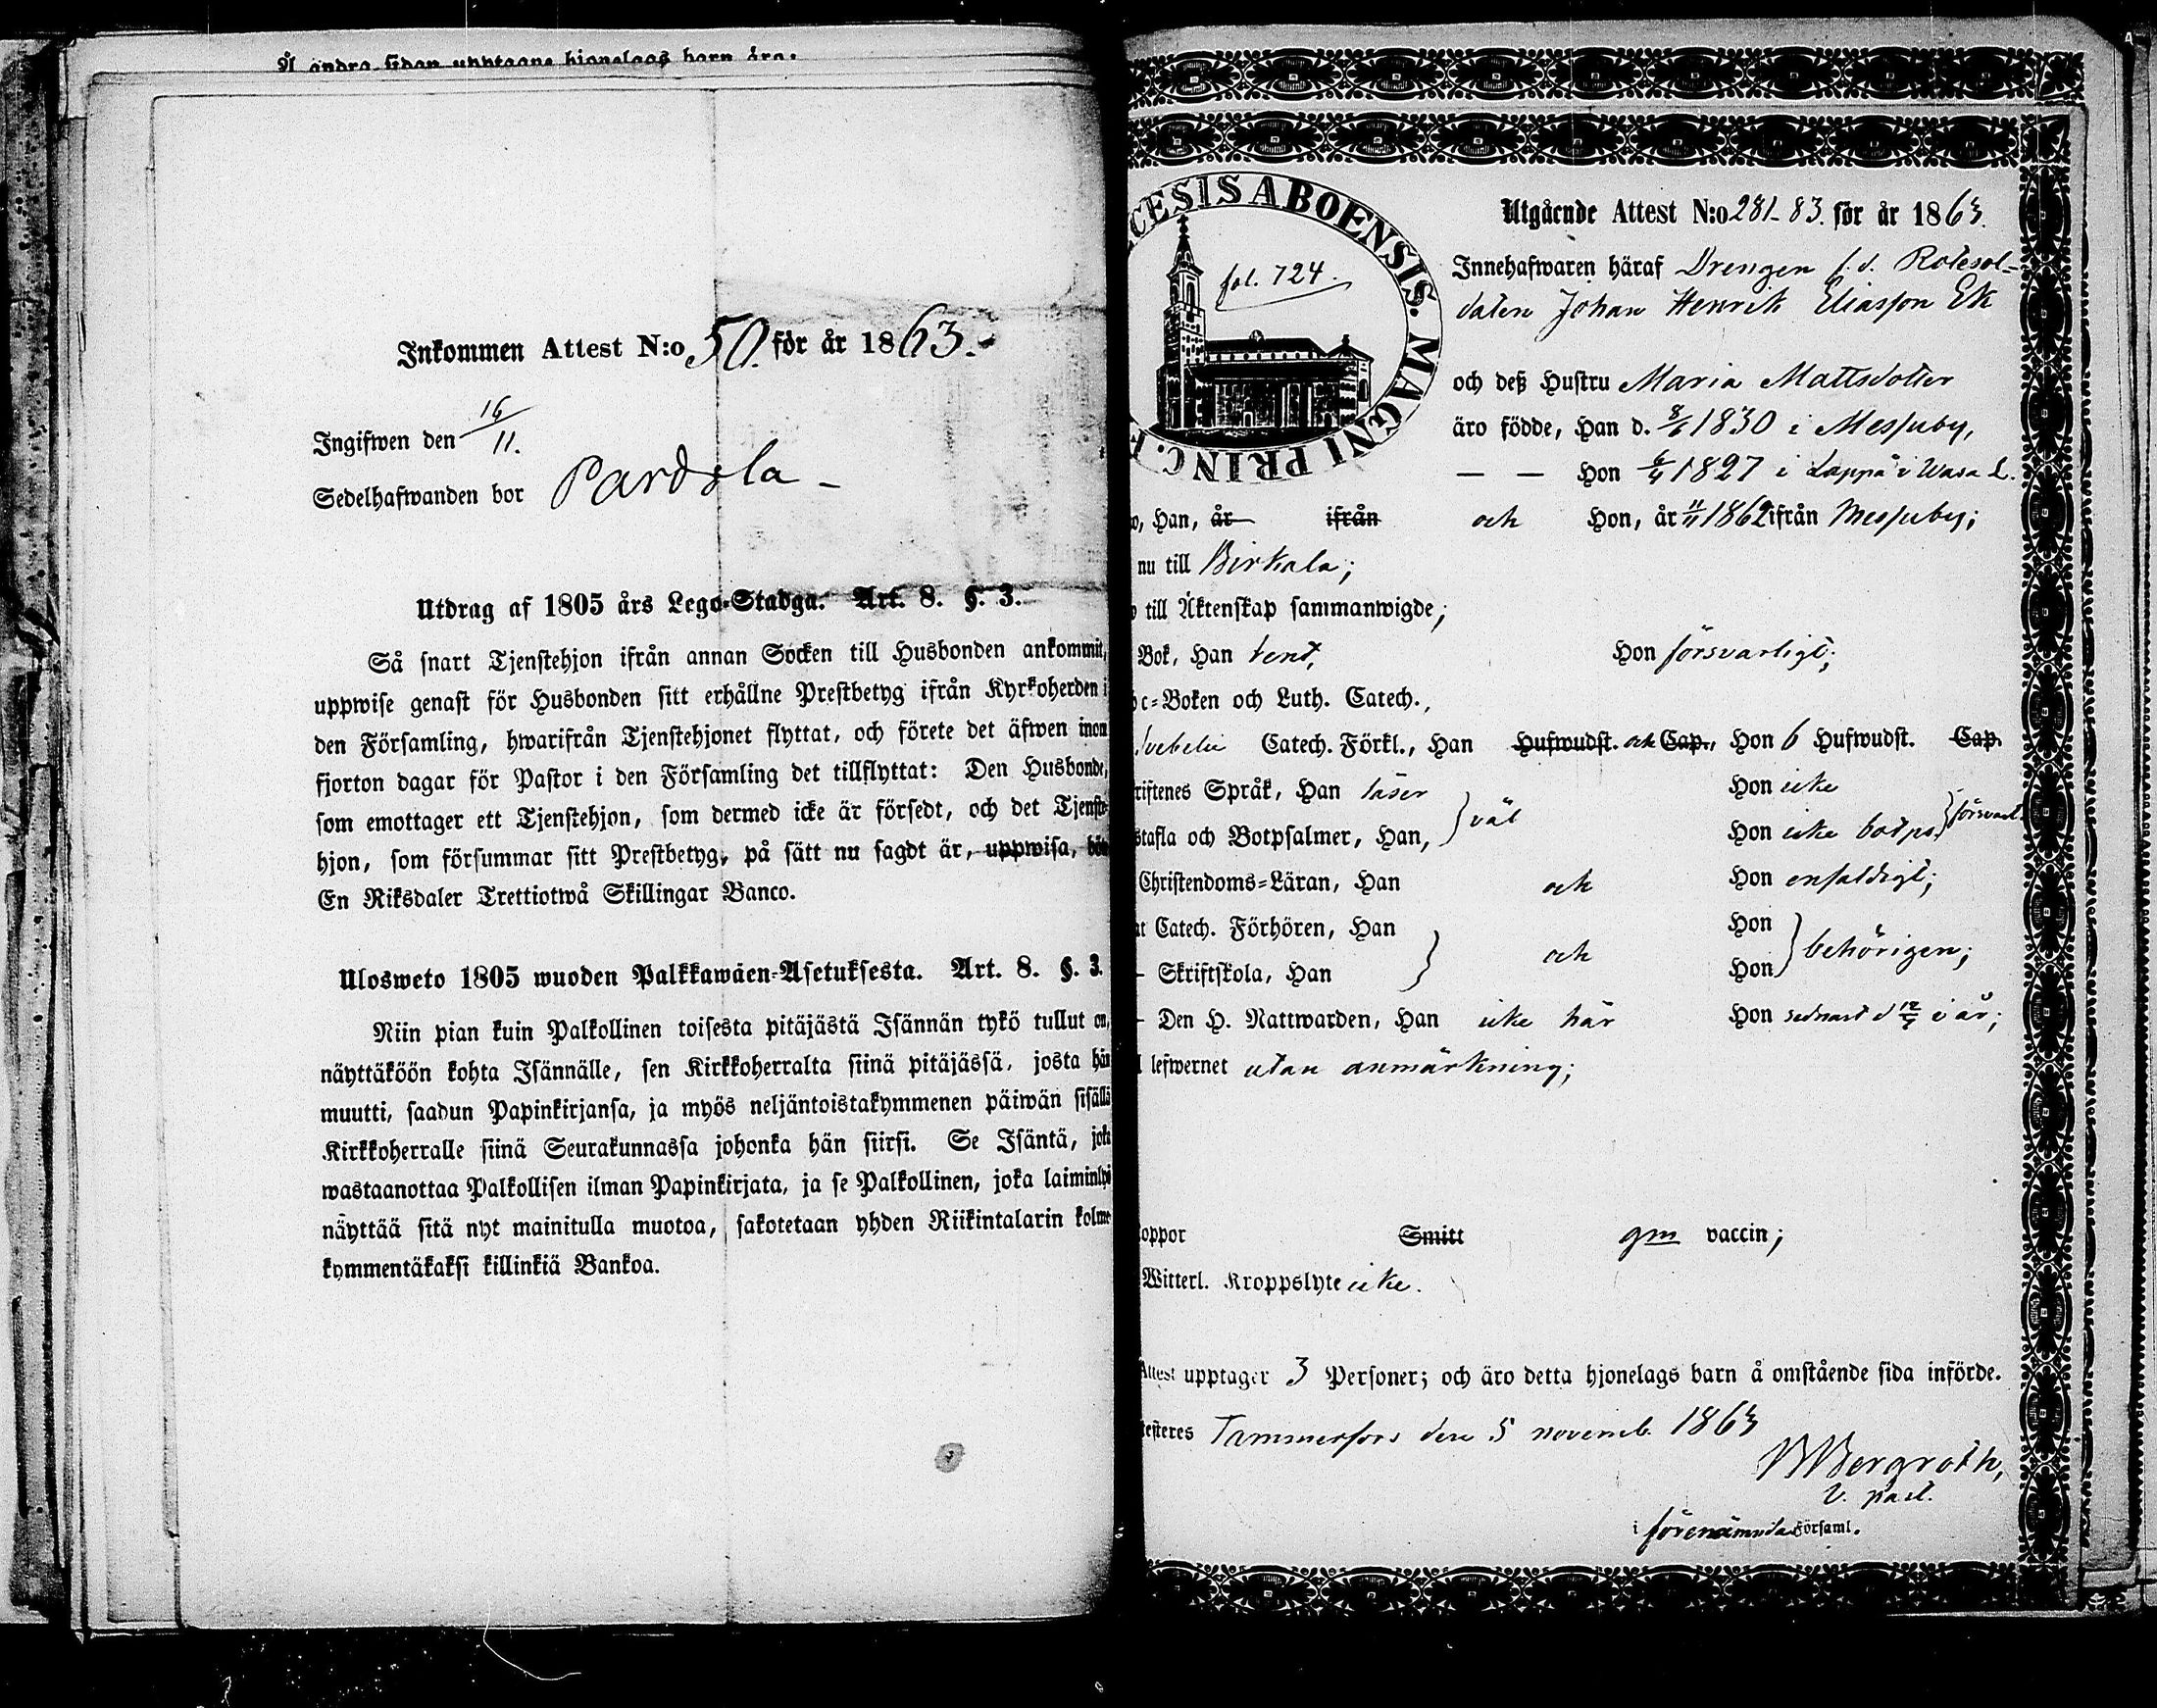 Å andra sidan upptagne hjonelags barn äro:
Inkommen Attest N:o 50. för år 1863.
Ingifwen den 16/11.
Sedelhafwanden bor Pardola
Utdrag af 1805 års Lego-Stadga. Art. 8. §. 3.
Så snart Tjenstehjon ifrån annan Socken till Husbonden ankommit,
uppwise genast för Husbonden sitt erhållne Prestbetyg ifrån Kyrkoherden i
den Församling, hwarifrån Tjenstehjonet flyttat, och förete det äfwen inom
fjorton dagar för Pastor i den Församling det tillflyttat: Den Husbonde,
som emottager ett Tjenstehjon, som dermed icke är försedt, och det Tjenste-
hjon, som försummar sitt Prestbetyg, på sätt nu sagdt är, uppwisa, böte
En Riksdaler Trettiotwå Skillingar Banco.
Ulosweto 1805 wuoden Palkkawäen-Asetuksesta. Art. 8. §. 3.
Niin pian kuin Palkollinen toisesta pitäjästä Isännän tykö tullut on,
näyttäköön kohta Isännälle, sen Kirkkoherralta siinä pitäjässä, josta hän
muutti, saadun Papinkirjansa, ja myös neljäntoistakymmenen päiwän sisällä
Kirkkoherralle siinä Seurakunnassa johonka hän siirsi. Se Isäntä, joka
wastaanottaa Palkollisen ilman Papinkirjata, ja se Palkollinen, joka laiminlyö
näyttää sitä nyt mainitulla muotoa, sakotetaan yhden Riikintalarin kolme-
kymmentäkaksi killinkiä Bankoa.
CESIS ABOENSIS. MAGNI PRINC. F
fol. 724.
Utgående Attest N:o 281-83. för år 1863.
Innehafwaren häraf Drengen f. d. Rotesol-
daten Johan Henrik Eliasson Ek
och deß Hustru Maria Mattsdotter
äro födde, Han d. 8/6 1830 i Messuby,
— — Hon 6/4 1827 i Lappå i Wasa L.
Han, år ifrån och Hon, år 11/11 1862 ifrån Messuby;
nu till Birkala;
till Äktenskap sammanwigde;
Bok, Han rent, Hon försvarligt;
c-Boken och Luth. Catech.,
Svebelii Catech. Förkl., Han Hufwudst. och Cap., Hon 6 Hufwudst. Cap.
riftenes Språk, Han läser Hon icke
stafla och Botpsalmer, Han, väl Hon icke botps. försvarl.
Christendoms-Läran, Han och Hon enfaldigt;
at Catech. Förhören, Han Hon
— Skriftskola, Han och Hon behörigen;
— Den H. Nattwarden, Han icke här Hon sednast d 12/7 i år;
lefwernet utan anmärkning;
oppor Smitt gm vaccin;
Witterl. Kroppslyte icke.
Attest upptager 3 Personer; och äro detta hjonelags barn å omstående sida införde.
testeres Tammerfors den 5 novemb. 1863
Bergroth,
v. past.
i förenämnda Församl.